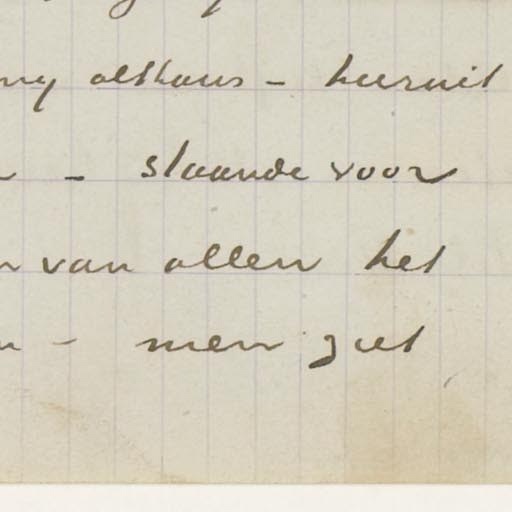 my althans – hieruit
– staande voor
van allen het
– men ziet